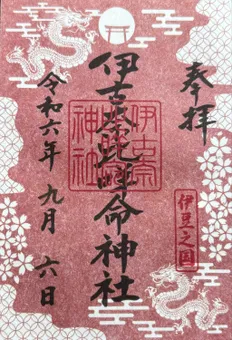 奉拝
伊古奈比咩命神社
伊古奈
神社
伊豆之国
令和六年九月六日